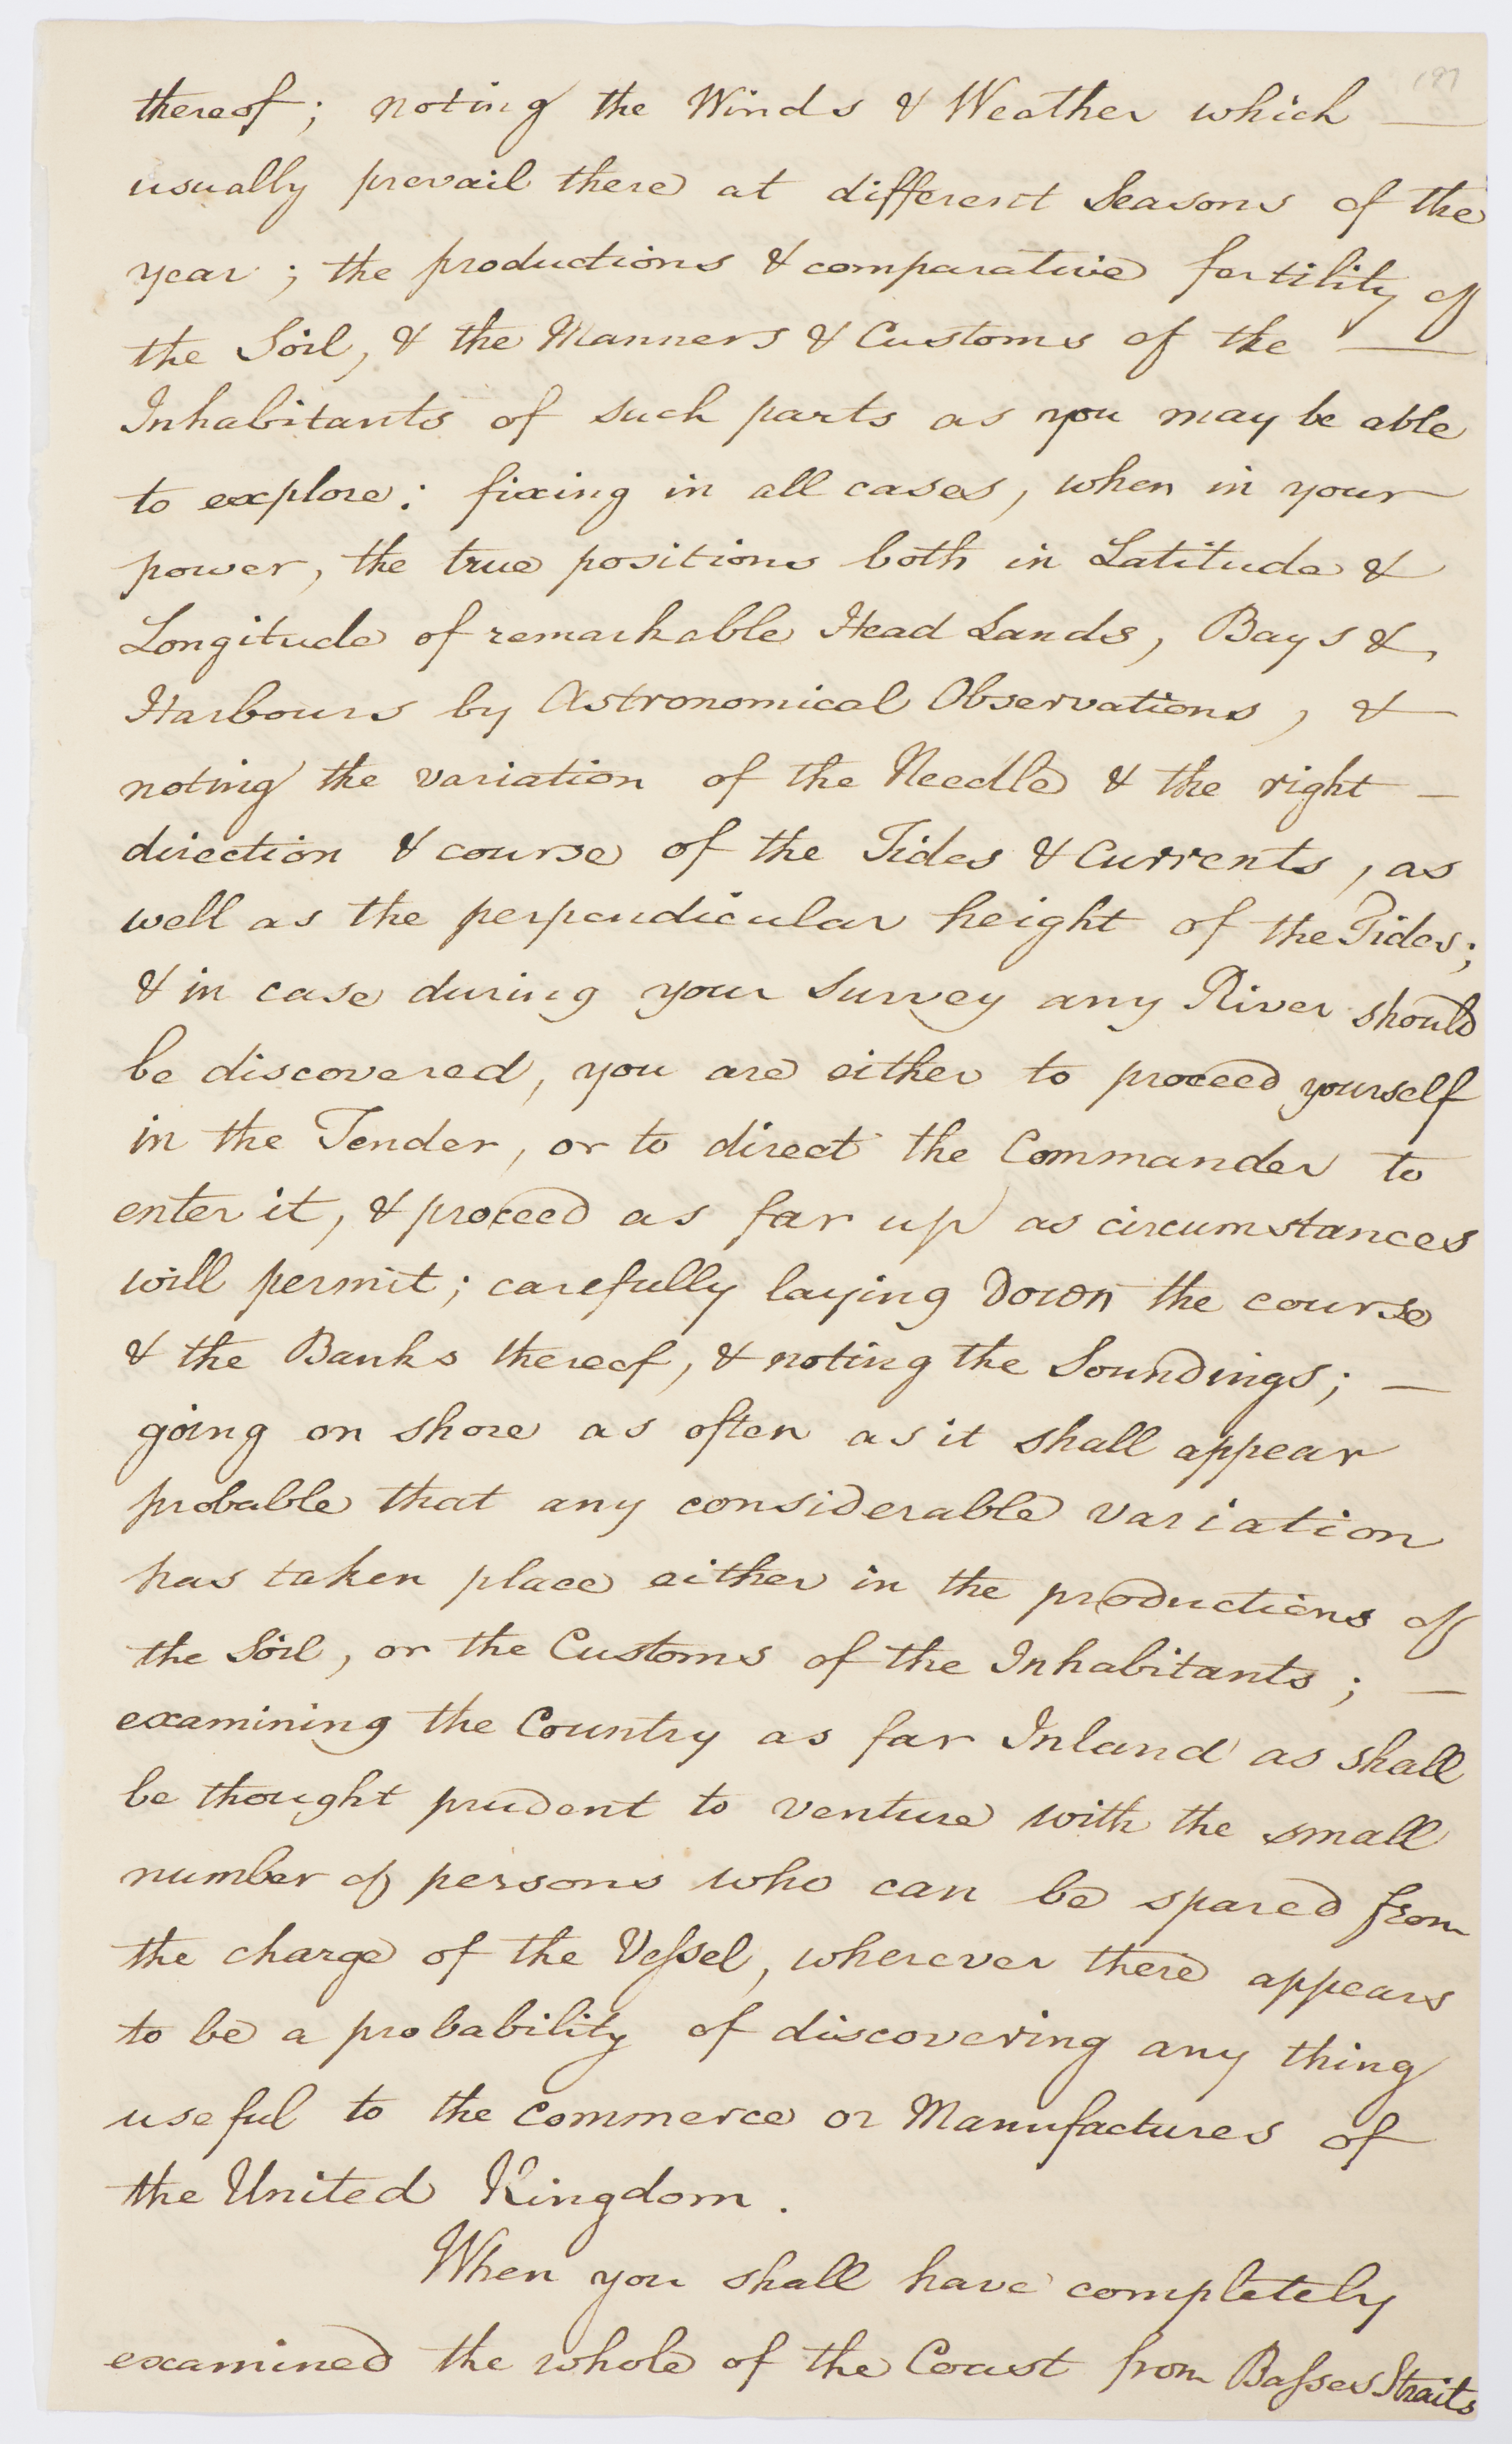 187
thereof; noting the Winds & Weather which —
usually prevail there at different Seasons of the
year; the productions & comparative fertility of
the Soil, & the Manners & Customs of the —
Inhabitants of such parts as you may be able
to explore: fixing in all cases, when in your
power, the true positions both in Latitude &
Longitude of remarkable Head Lands, Bays &
Harbours by Astronomical Observations, & —
noting the variation of the Needle & the right —
direction & course of the Tides & Currents, as
well as the perpendicular height of the Tides;
& in case during your survey any River should
be discovered, you are either to proceed yourself
in the Tender, or to direct the Commander to
enter it, & proceed as far up as circumstances
will permit; carefully laying down the course
& the Banks thereof, & noting the Soundings; —
going on shore as often as it shall appear
probable that any considerable variation
has taken place either in the productions of
the Soil, or the Customs of the Inhabitants; —
examining the Country as far Inland as shall
be thought prudent to venture with the small
number of persons who can be spared from
the charge of the Veſsel, wherever there appears
to be a probability of discovering any thing
useful to the Commerce or Manufactures of
the United Kingdom.
When you shall have completely
examined the whole of the Coast from Baſses Straits